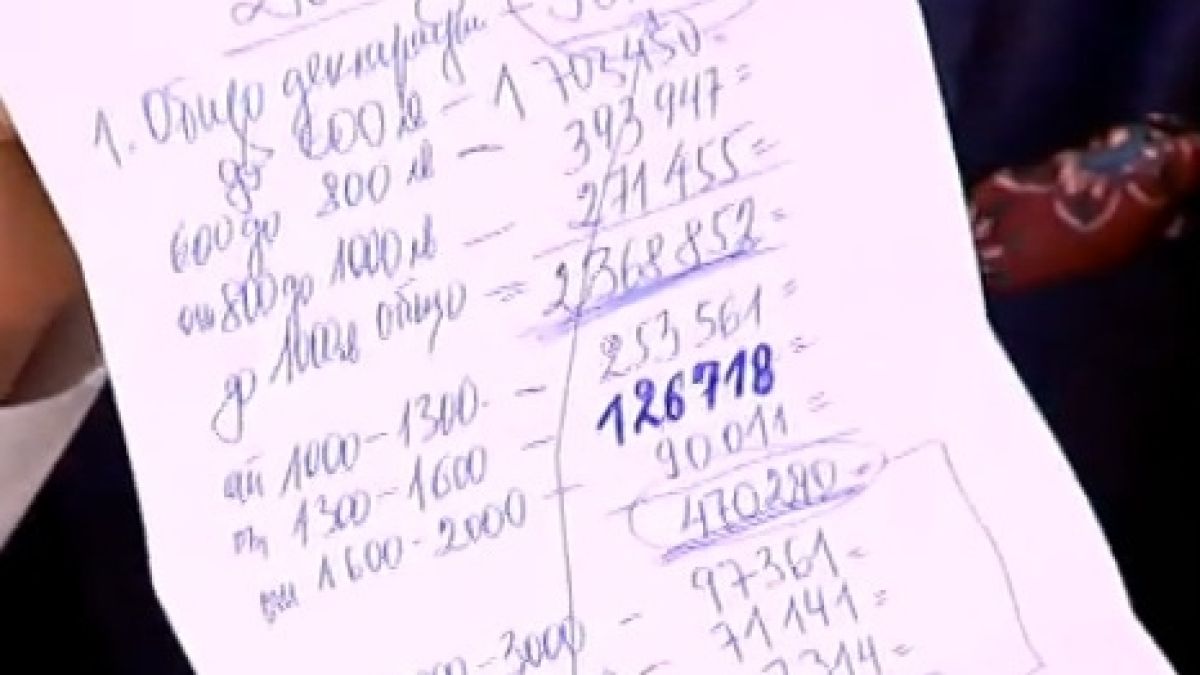 1. Общо декларирали -
до 600 лв - 1 703 450 =
600 до 800 лв - 393 947 =
от 800 до 1000 лв - 271 455 =
до 1000лв общо = 2 368 852 =
от 1000-1300 - 253 561 =
от 1300-1600 - 126718 =
от 1600-2000 - 90 011 =
470290 =
97361 =
-3000 - 71 141 =
314 =